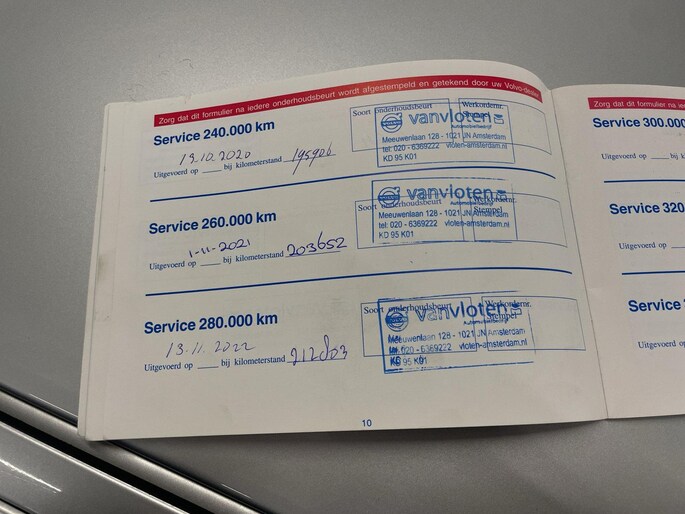 Zorg dat dit formulier na iedere onderhoudsbeurt wordt afgestempeld en getekend door uw Volvo-dealer
Service 240.000 km
Soort onderhoudsbeurt
Werkordernr.
Stempel
vanvloten
Automobielbedrijf
Meeuwenlaan 128 - 1021 JN Amsterdam
tel: 020 - 6369222 vloten-amsterdam.nl
KD 95 K01
19.10.2020
Uitgevoerd op ____ bij kilometerstand 195906
Service 260.000 km
Soort onderhoudsbeurt
Werkordernr.
Stempel
vanvloten
Meeuwenlaan 128 - 1021 JN Amsterdam
tel: 020 - 6369222 vloten-amsterdam.nl
KD 95 K01
1-11-2021
Uitgevoerd op ____ bij kilometerstand 203652
Service 280.000 km
Soort onderhoudsbeurt
Werkordernr.
Stempel
vanvloten
Automobielbedrijf
Meeuwenlaan 128 - 1021 JN Amsterdam
020 - 6369222 vloten-amsterdam.nl
95 K01
13.11.2022
Uitgevoerd op ____ bij kilometerstand
10
Zorg dat dit formulier na
Service 300.000
Uitgevoerd op
Service 320
Uitgevoerd op
Service
Uitgevoerd op